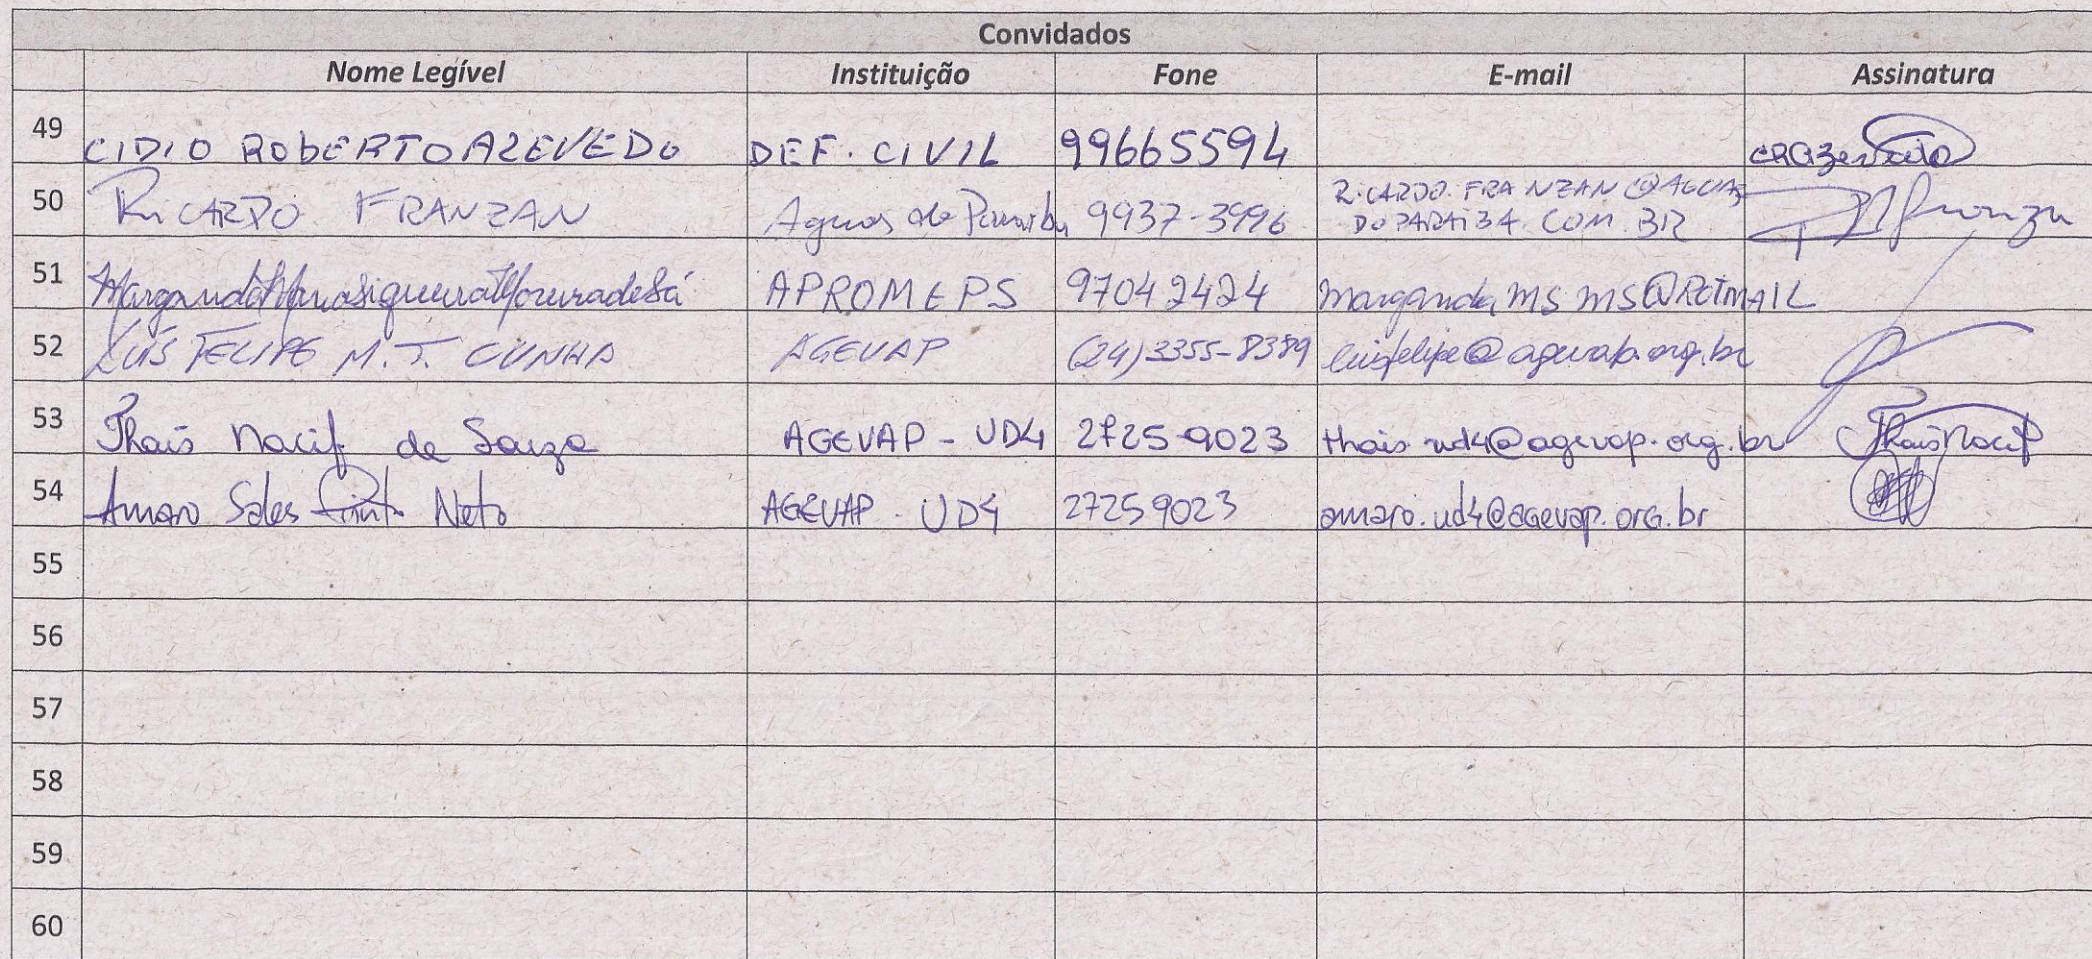 Convidados
Nome Legível Instituição Fone E-mail Assinatura
49 CIDIO ROBERTO AZEVEDO DEF. CIVIL 99665594
50 RICARDO FRANZAN Aguas do Paraiba 9937-3996 RICARDO.FRANZAN@AGUAS
DOPARAIBA.COM.BR
51 Siqueira de Sá APROMEPS 97042424 margarida MS MS@HOTMAIL
52 LUÍS FELIPE M. T. CUNHA AGEVAP (24)3355-8389 luisfelipe@agevap.org.br
53 Thais Nacif de Souza AGEVAP - UD4 2725-9023 thais.ud4@agevap.org.br Thais Nacif
54 Amaro Sales Pinto Neto AGEVAP - UD4 27259023 amaro.ud4@agevap.org.br
55
56
57
58
59
60